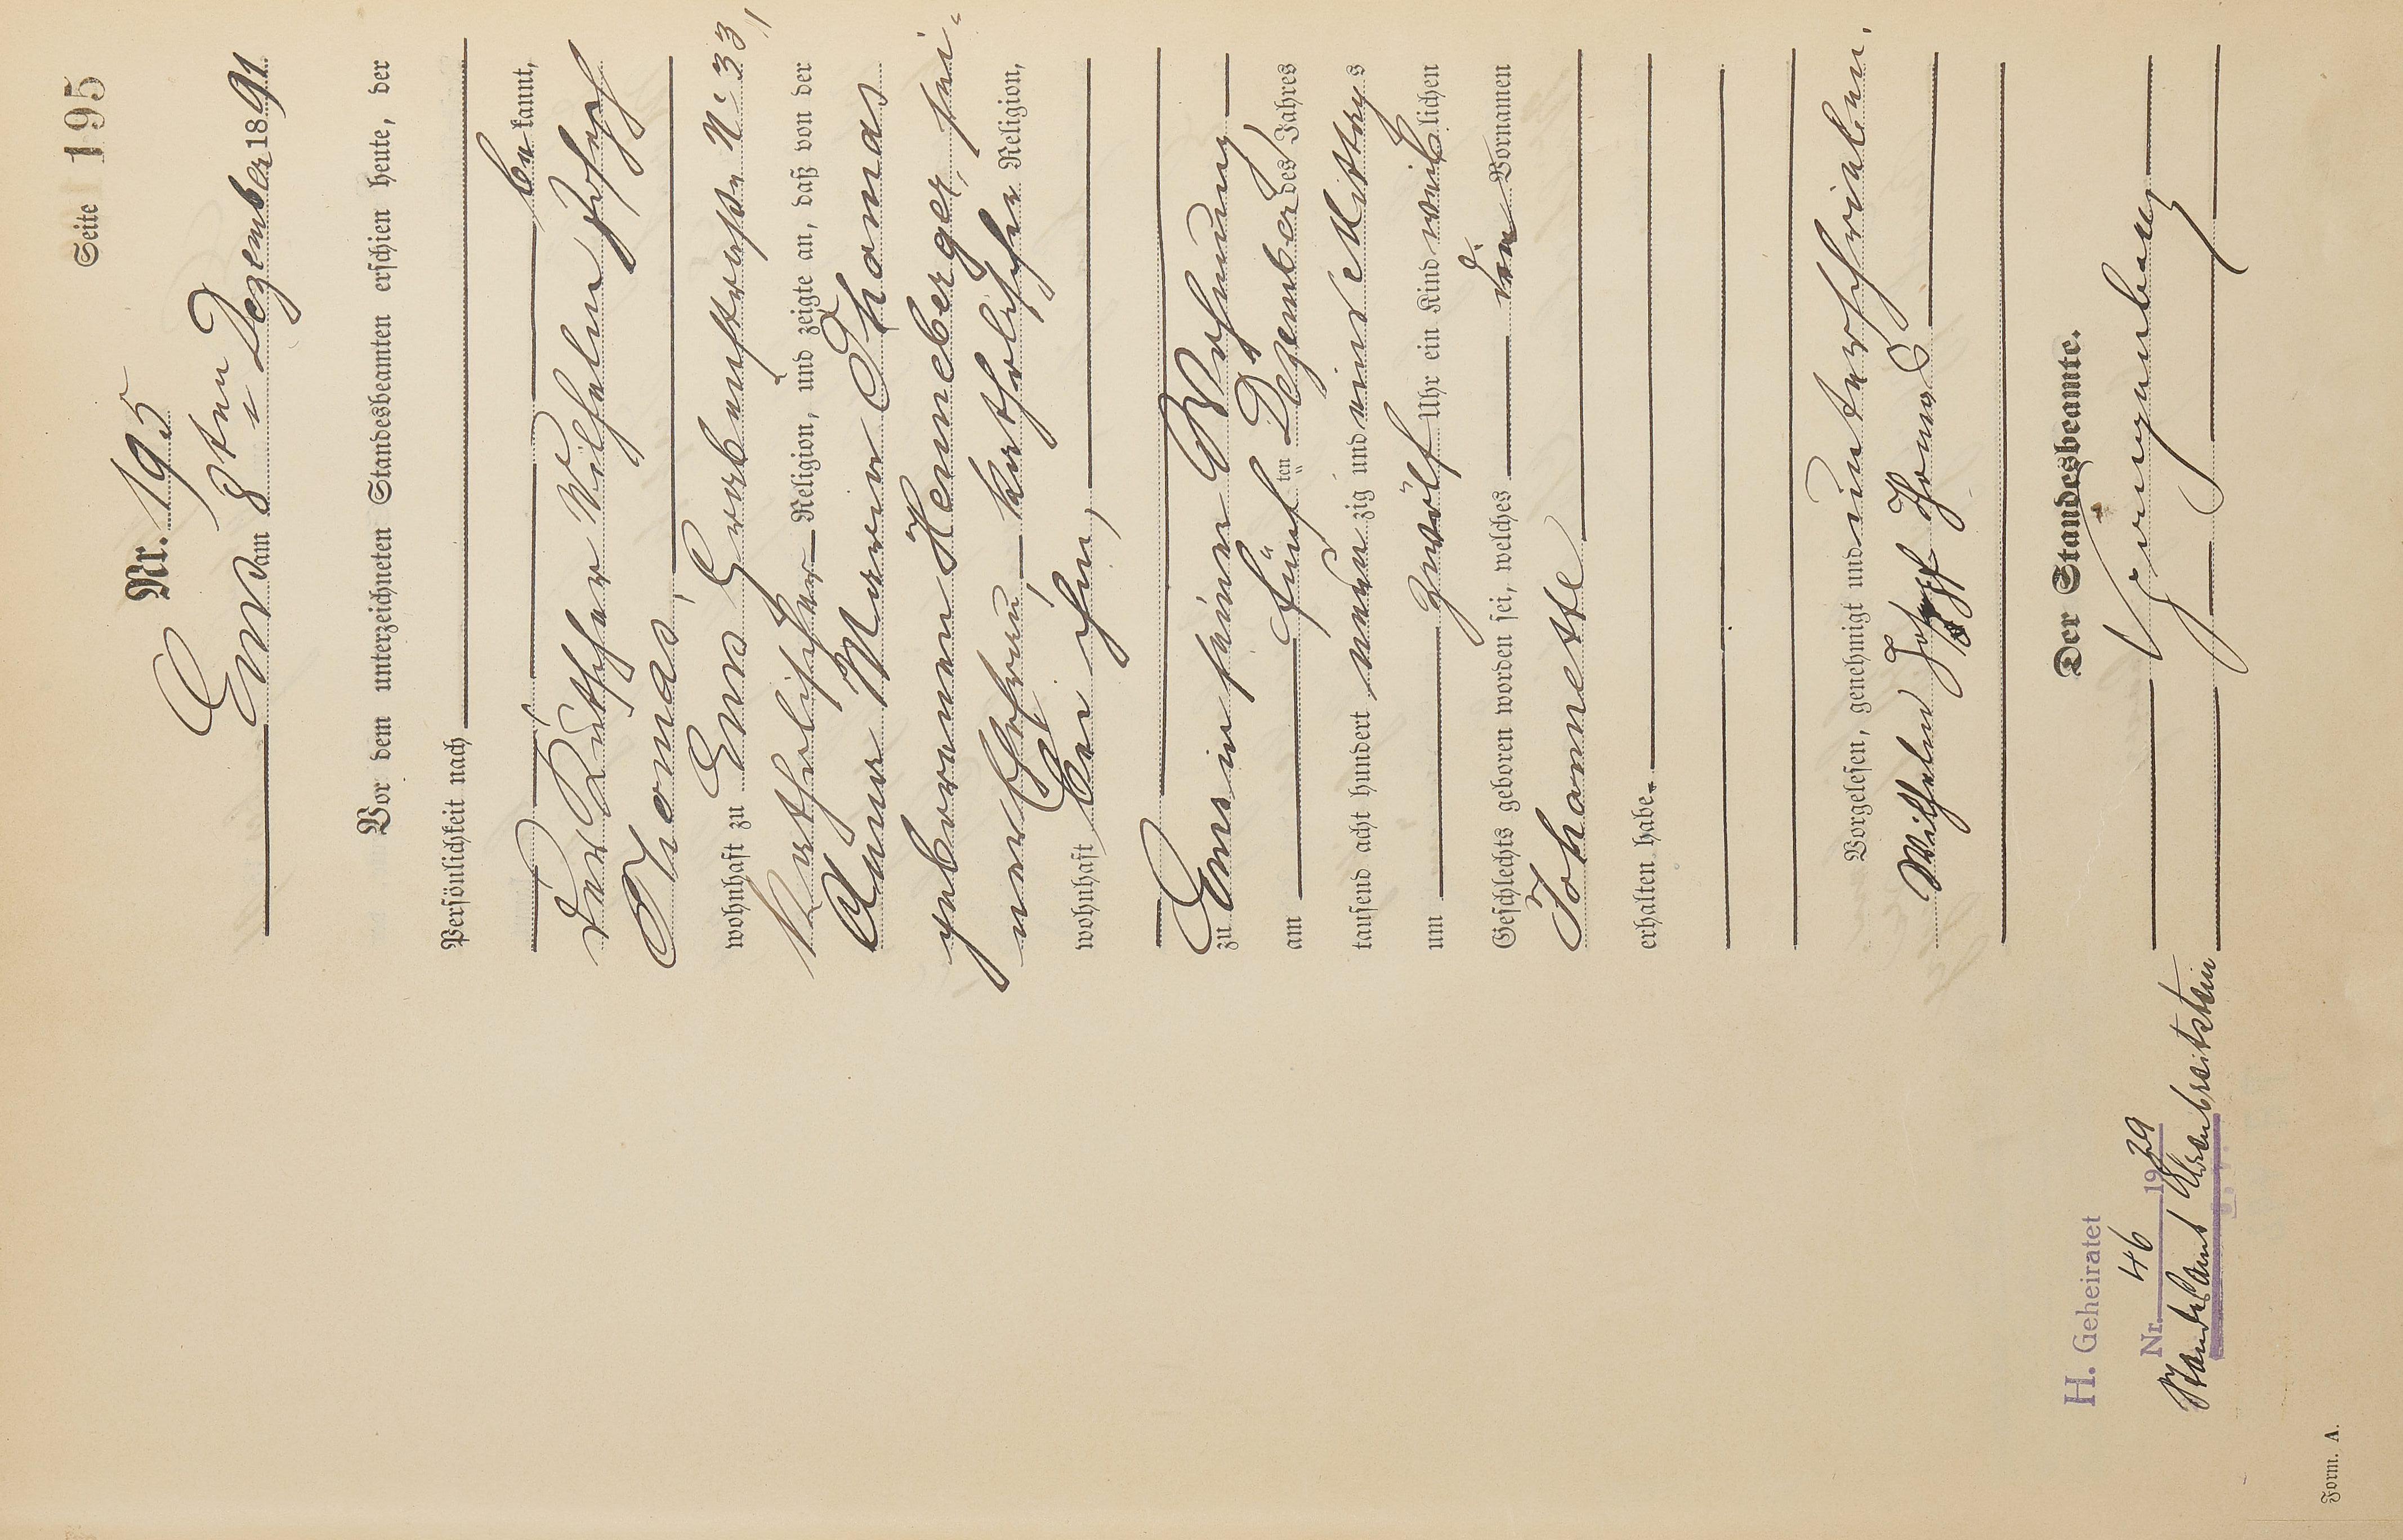 Seite 195
Nr. 195
Ems am 8ten Dezember 1891
Vor dem unterzeichneten Standesbeamten erschien heute, der
Persönlichkeit nach
be kannt,
der Kutscher Wilhelm Joseph
Thomas,
wohnhaft zu Ems, Grabenstraße No 33,
katholischer Religion, und zeigte an, daß von der
Anna Maria Thomas
geborenen Henneberger, sei-
ner Ehefrau, katholischer Religion,
wohnhaft bei ihm,
zu Ems in seiner Wohnung
am fünften Dezember des Jahres
tausend acht hundert neunzig und eins Mittags
um zwölf Uhr ein Kind weiblichen
Geschlechts geboren worden sei, welches den Vornamen
Johannette
erhalten habe.
Vorgelesen, genehmigt und unterschrieben.
Wilhelm Josef Thomas
Der Standesbeamte.
H. Geheiratet
Nr. 46 1929
Standesamt Ehrenbreitstein
Form. A.